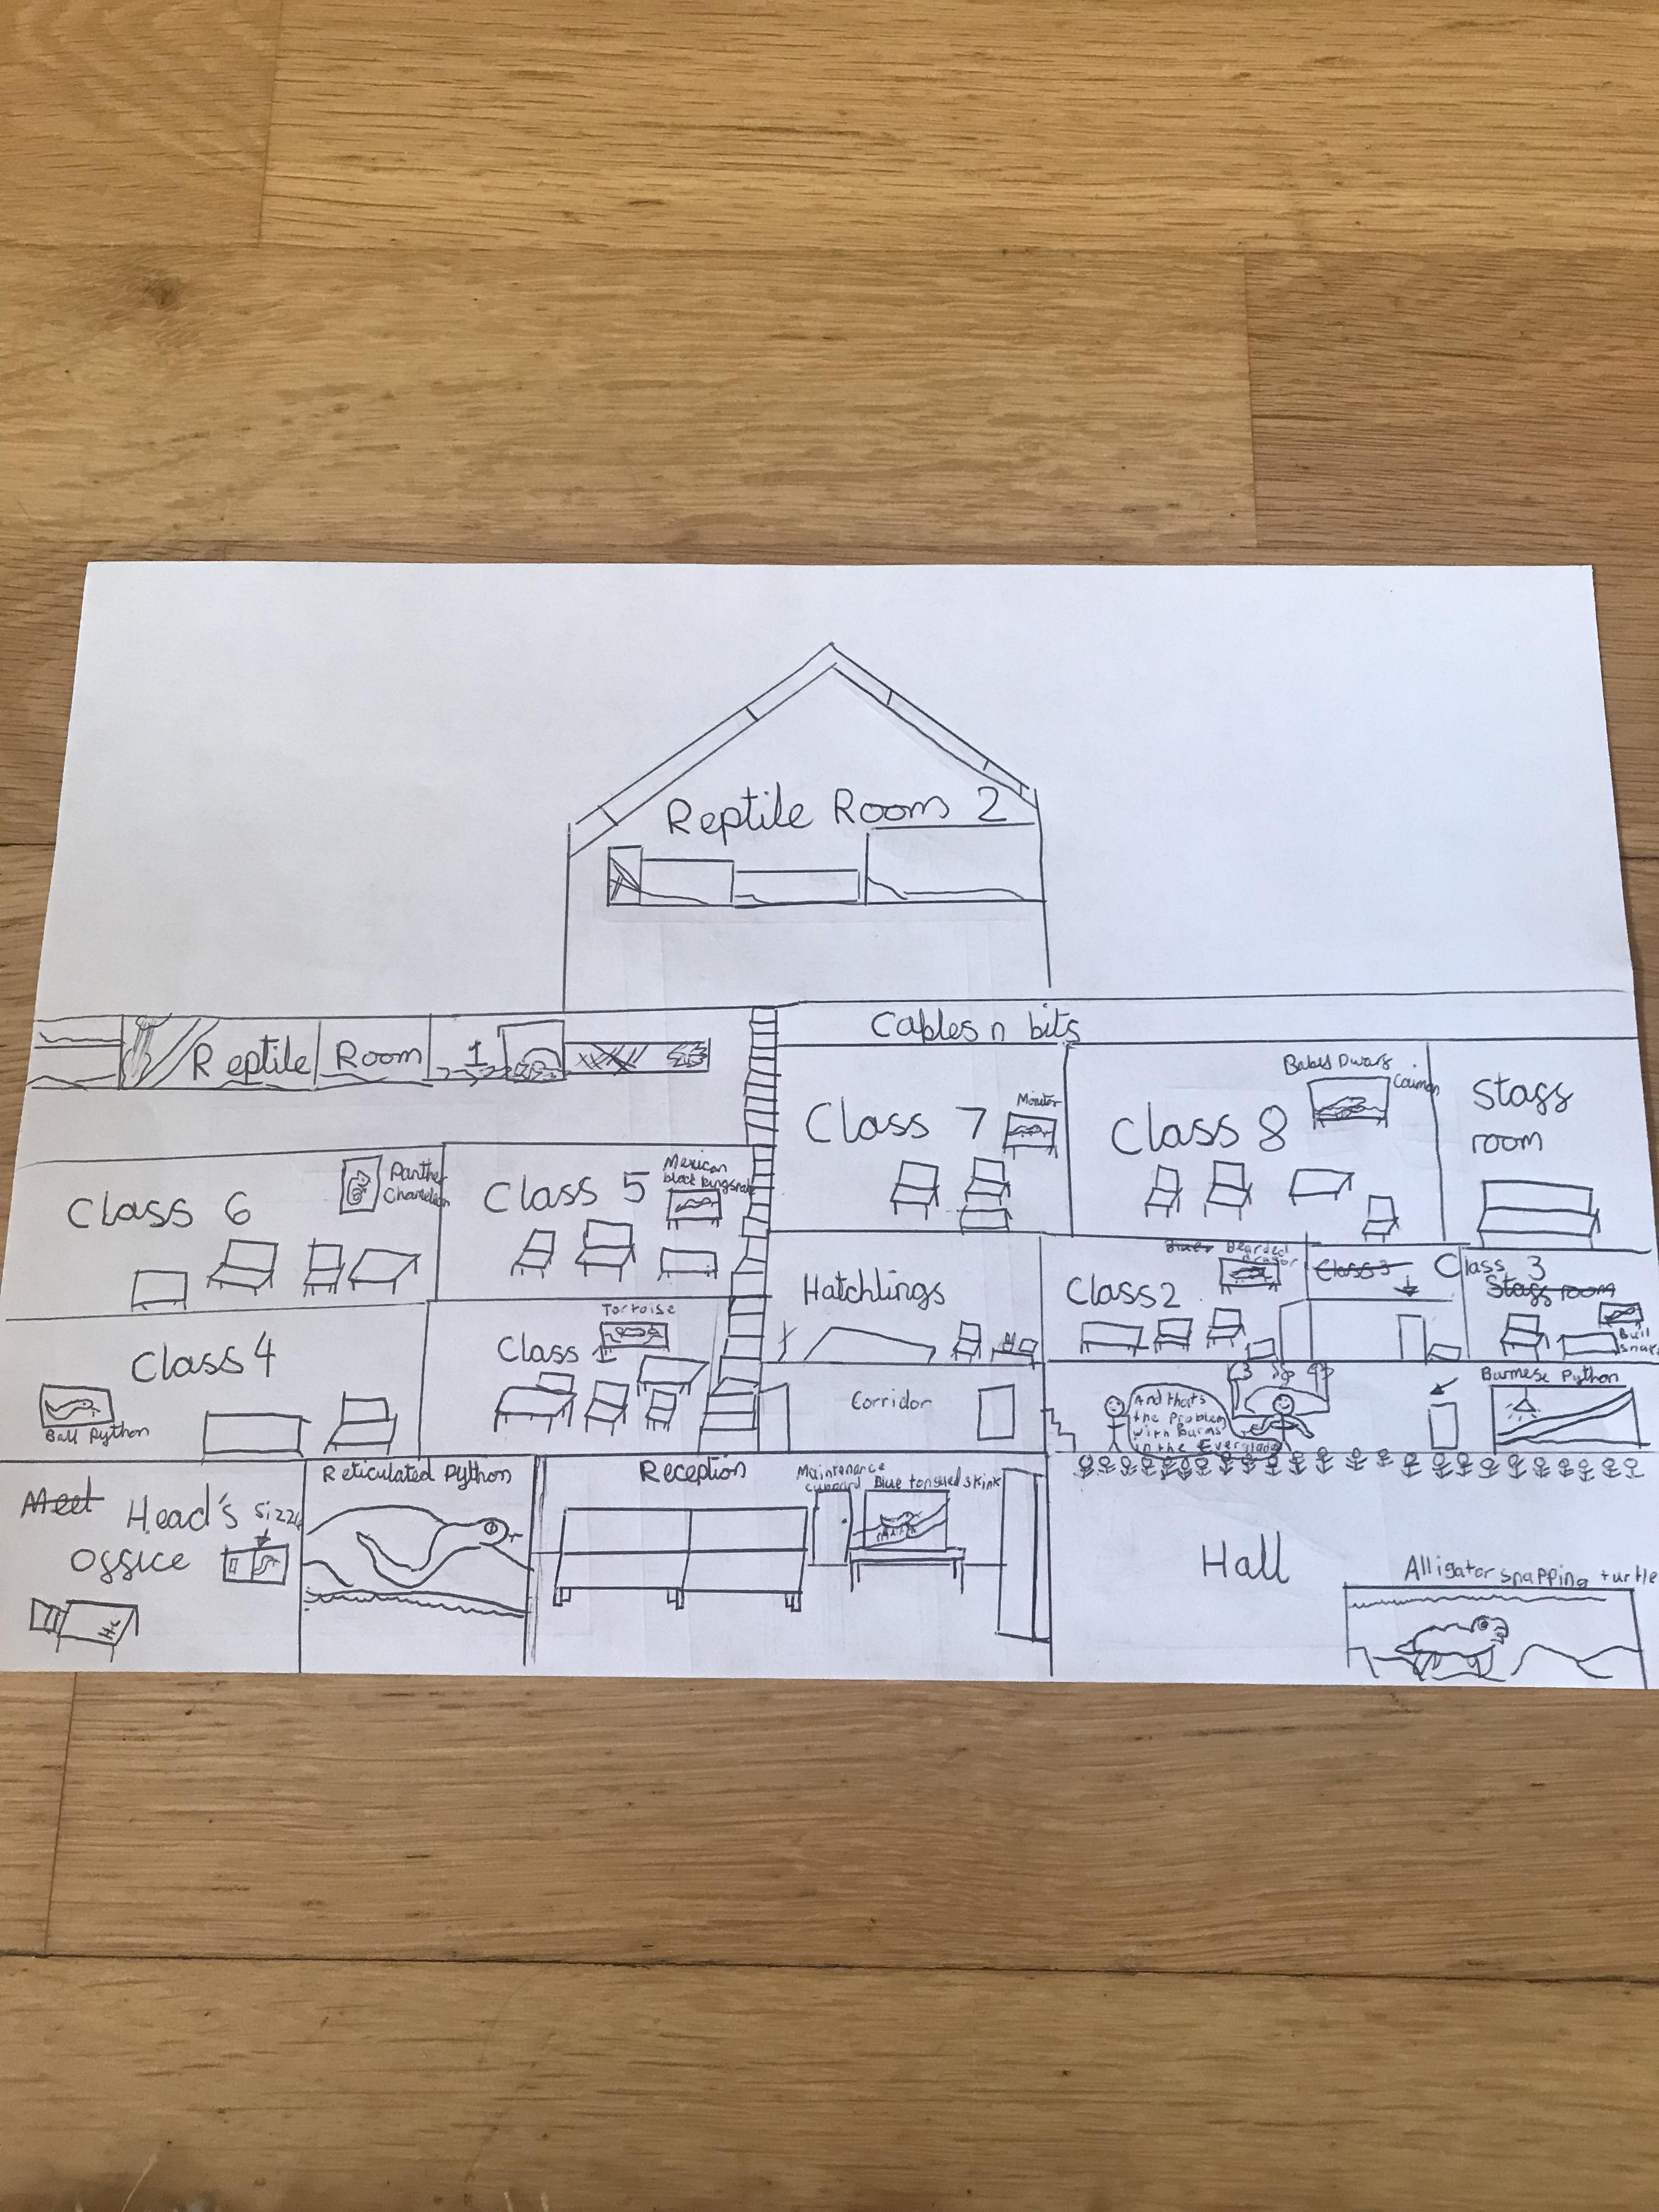 Reptile Room 2
Cables n bits
Reptile Room 1
Class 7
Monitor
Class 8
Baby Dwarf
Caiman
Staff
room
Class 6
Panther
Chameleon
Class 5
Mexican
black kingsnake
Hatchlings
Class 2
Bearded
dragon
Class 3
Class 3
Staff room
Bull
snake
Class 4
Ball Python
Class 1
Tortoise
Corridor
And thats
the problem
with burms
in the Everglades
Burmese Python
Meet
Head's
office
Reticulated Python
Reception
Maintenance
cupboard
Blue tongued skink
Hall
Alligator snapping turtle